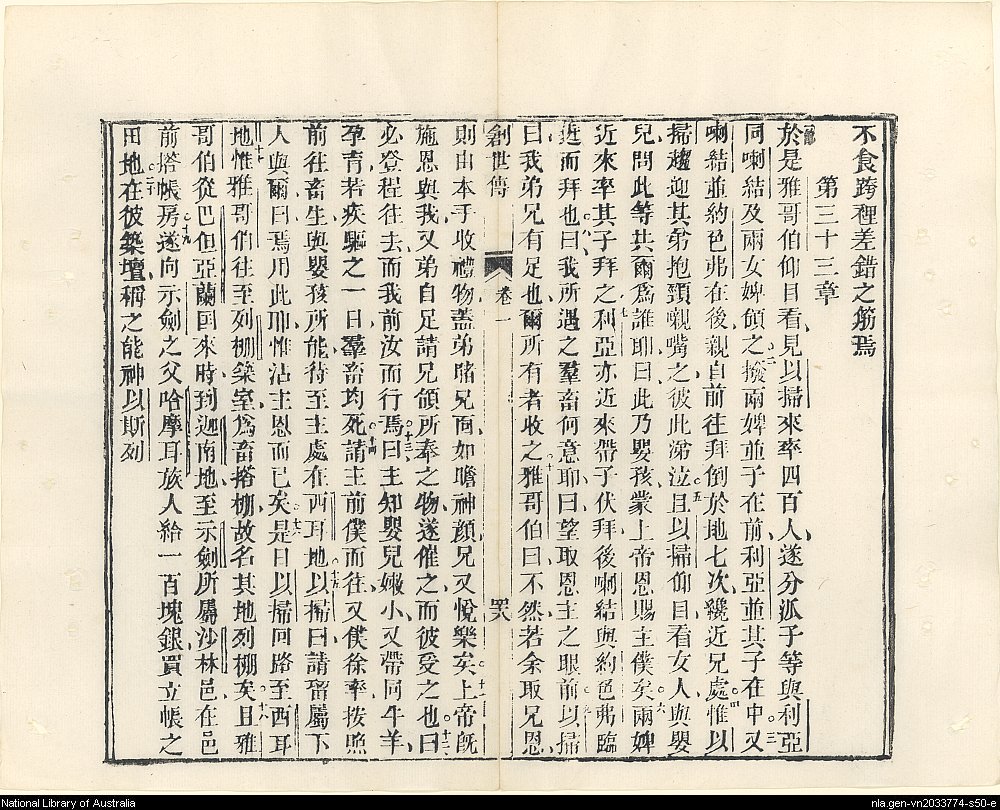 不食跨裡差錯之筋焉
第三十三章
於是雅哥伯仰目看見以掃來率四百人遂分派子等與利亞
同喇結及兩女婢○二領之撥兩婢並子在前利亞並其子在中又
喇結並約色弗在後○三親自前往拜倒於地七次纔近兄處○四惟以
掃趨迎其弟抱頸嘴之彼此涕泣○五且以掃仰目看女人與嬰
兒問此等共爾為誰耶曰此乃嬰孩蒙上帝恩賜主僕矣○六兩婢
近來率其子拜之○七利亞亦近來帶子伏拜後喇結與約色弗臨
近而拜也○八曰我所遇之羣畜何意耶曰望取恩主之眼前○九以掃
曰我弟兄有足也爾所有者收之○十雅哥伯曰不然若余取兄恩
創世傳 卷一
則由本手收禮物蓋弟睹兄面如瞻神顏兄又悅樂矣○十一上帝旣
施恩與我又弟自足請兄領所奉之物遂催之而彼受之也○十二曰
必登程往去而我前汝而行焉○十三曰主知嬰兒嫩小又帶同牛羊
孕育若疾驅之一日羣畜均死○十四請主前僕而往又僕徐率按照
前往畜生與嬰孩所能待至主處在西耳地○十五以掃曰請留屬下
人與爾曰焉用此耶惟沾主恩而已矣○十六是日以掃回路至西耳
地○十七惟雅哥伯往至列棚築室為畜搭棚故名其地列棚矣○十八且雅
哥伯從巴但亞蘭回來時到迦南地至示劍所屬沙林邑在邑
前搭帳房○十九遂向示劍之父哈摩耳族人給一百塊銀買立帳之
田地○二十在彼築壇稱之能神以斯列